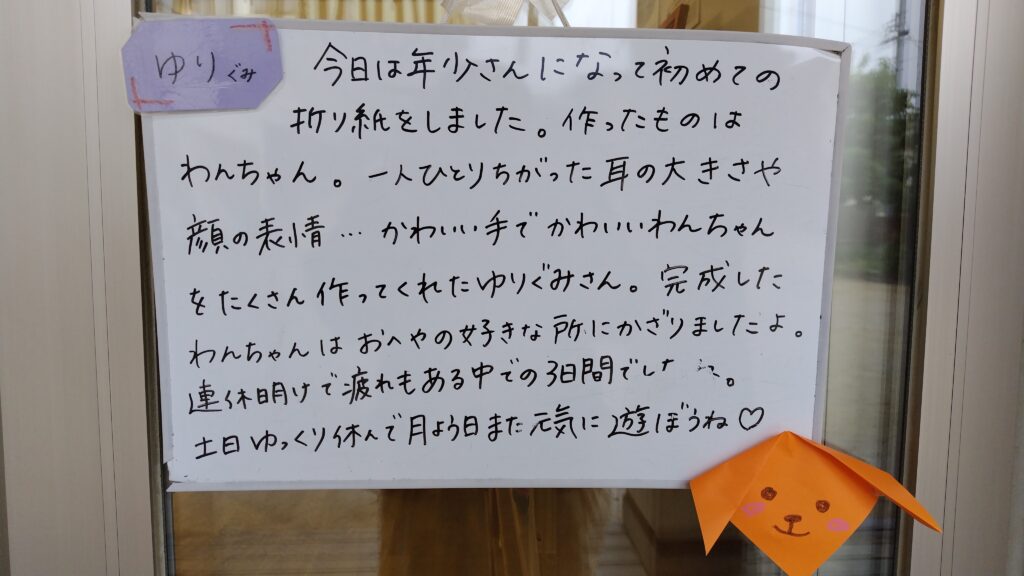 ゆりぐみ
今日は年少さんになって初めての
折り紙をしました。作ったものは
わんちゃん。一人ひとりちがった耳の大きさや
顔の表情…かわいい手でかわいいわんちゃん
をたくさん作ってくれたゆりぐみさん。完成した
わんちゃんはおへやの好きな所にかざりましたよ。
連休明けで疲れもある中での3日間でした 。
土日ゆっくり休んで月よう日また元気に遊ぼうね♡